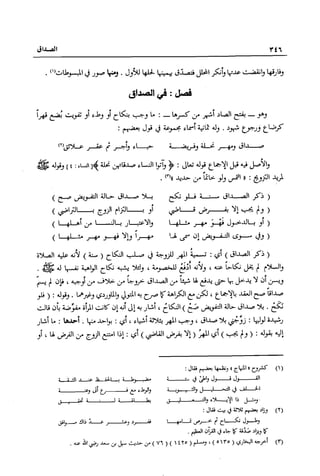 ٣٤٦ الصداق
وفارقها وانقضت عدتها وأنكر المحلل فتصدق بيمينها لحلها للأول. ومنها صور في المبسوطات(١).
فصل: في الصداق
وهو ــ بفتح الصاد أشهر من كسرها ــ: ما وجب بنكاح أو وطء أو تفويت بضع قهراً
كرضاع ورجوع شهود. وله ثمانية أسماء مجموعة في قول بعضهم:
صداق ومهر نحلة وفريضة حباء وأجر ثم عقر علائق(٢)
والأصل فيه قبل الإجماع قوله تعالى: ﴿وآتوا النساء صدقاتهن نحلة﴾ [النساء: ٤] وقوله ﷺ
لمريد التزويج: «التمس ولو خاتماً من حديد»(٣).
(ذكر الصداق سنة فلو نكح بلا صداق حالة التفويض صح)
(ولم يجب إلا بفرض قاضي أو بالتزام الزوج بالتراضي)
(أو بالدخول فهو مهر مثلها والاعتبار بالنسا من أهلها)
(وفي سوى التفويض إن سمى لها مهراً وإلا فهو مهر مثلها)
(ذكر الصداق) أي: تسمية المهر للزوجة في صلب النكاح (سنة) لأنه عليه الصلاة
والسلام لم يخل نكاحاً عنه، ولأنه أدفع للخصومة، ولئلا يشبه نكاح الواهبة نفسها له ﷺ.
ويسن أن لا يدخل بها حتى يدفع لها شيئاً من الصداق خروجاً من خلاف من أوجبه، فإن لم يسم
صداقاً صح العقد بالإجماع، لكن مع الكراهة كما صرح به المتولي والماوردي وغيرهما. وقوله: (فلو
نكح. بلا صداق حالة التفويض صح) النكاح، أشار به إلى أنه إن كانت المرأة مفوضة بأن قالت
رشيدة لوليها: زوجني بلا صداق، وجب المهر بثلاثة أشياء، أي: بواحد منها. أحدها: ما أشار
إليه بقوله: (ولم يجب) أي المهر (إلا بفرض القاضي) أي: إذا امتنع الزوج من الفرض لها، أو
(١) كشروح المنهاج ونظمها بعضهم فقال:
(٢) وزاد بعضهم ثلاثة في بيت فقال:
(٣) أخرجه البخاري (٥١٣٥)، ومسلم (١٤٢٥) (٧٦) من حديث سهل بن سعد رضي الله عنه.